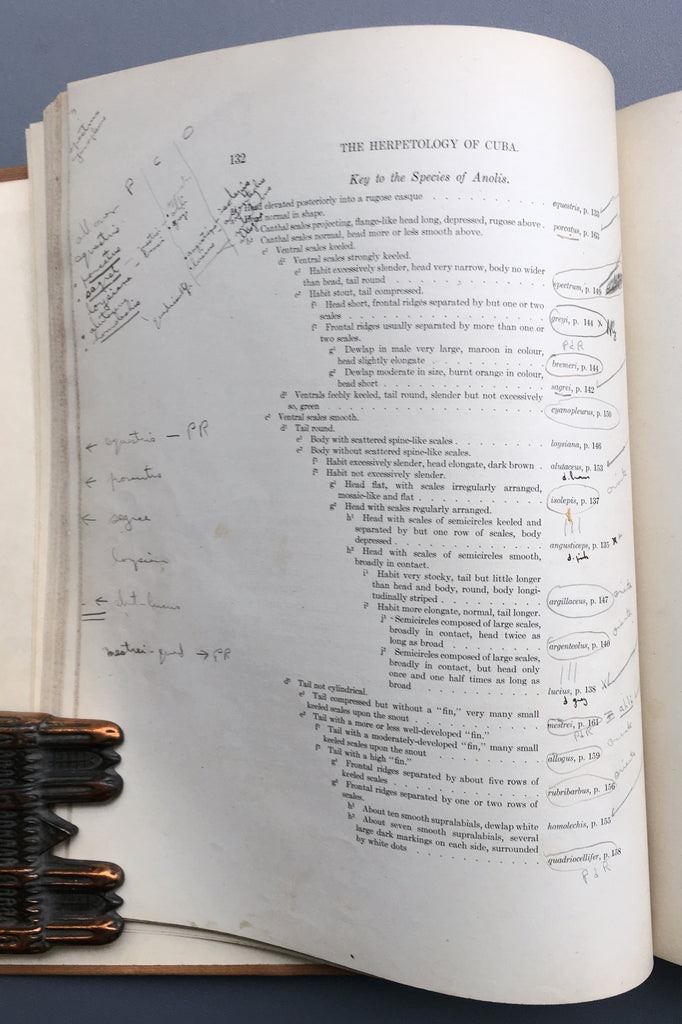 132
THE HERPETOLOGY OF CUBA.
Key to the Species of Anolis.
Head elevated posteriorly into a rugose casque . . equestris, p. 132
Head normal in shape.
Canthal scales projecting, flange-like head long, depressed, rugose above . porcatus, p. 163
Canthal scales normal, head more or less smooth above.
c¹ Ventral scales keeled.
d¹ Ventral scales strongly keeled.
e¹ Habit excessively slender, head very narrow, body no wider
than head, tail round . . . spectrum, p. 149
e² Habit stout, tail compressed.
f¹ Head short, frontal ridges separated by but one or two
scales . . . greyi, p. 144 x
f² Frontal ridges usually separated by more than one or
two scales.
P d R
g¹ Dewlap in male very large, maroon in colour,
head slightly elongate . . . bremeri, p. 144
g² Dewlap moderate in size, burnt orange in colour,
head short . . . sagrei, p. 142
d² Ventrals feebly keeled, tail round, slender but not excessively
so, green . . . cyanopleurus, p. 150
c² Ventral scales smooth.
d¹ Tail round.
e¹ Body with scattered spine-like scales . . . loysiana, p. 146
e² Body without scattered spine-like scales.
f¹ Habit excessively slender, head elongate, dark brown . alutaceus, p. 153
f² Habit not excessively slender.
g¹ Head flat, with scales irregularly arranged,
mosaic-like and flat . . . isolepis, p. 137
g² Head with scales regularly arranged.
h¹ Head with scales of semicircles keeled and
separated by but one row of scales, body
depressed . . . angusticeps, p. 135 x
h² Head with scales of semicircles smooth,
broadly in contact.
i¹ Habit very stocky, tail but little longer
than head and body, round, body longi-
tudinally striped . . . argillaceus, p. 147
i² Habit more elongate, normal, tail longer.
j¹ Semicircles composed of large scales,
broadly in contact, head twice as
long as broad . . . argenteolus, p. 140
j² Semicircles composed of large scales,
broadly in contact, but head only
once and one half times as long as
broad . . . lucius, p. 138 x
d² Tail not cylindrical.
e¹ Tail compressed but without a "fin," very many small
keeled scales upon the snout . . . mestrei, p. 161
P d R
e² Tail with a more or less well-developed "fin."
f¹ Tail with a moderately-developed "fin," many small
keeled scales upon the snout . . . allogus, p. 159
f² Tail with a high "fin."
g¹ Frontal ridges separated by about five rows of
keeled scales . . . rubribarbus, p. 156
g² Frontal ridges separated by one or two rows of
scales.
h¹ About ten smooth supralabials, dewlap white . homolechis, p. 155
h² About seven smooth supralabials, several
large dark markings on each side, surrounded
by white dots . . . quadriocellifer, p. 158
P d R
P C O
all over
equestris
porcatus
sagrei
loysiana
← equestris — PR
← porcatus
← sagrei
loysiana
mestrei-quad → PR